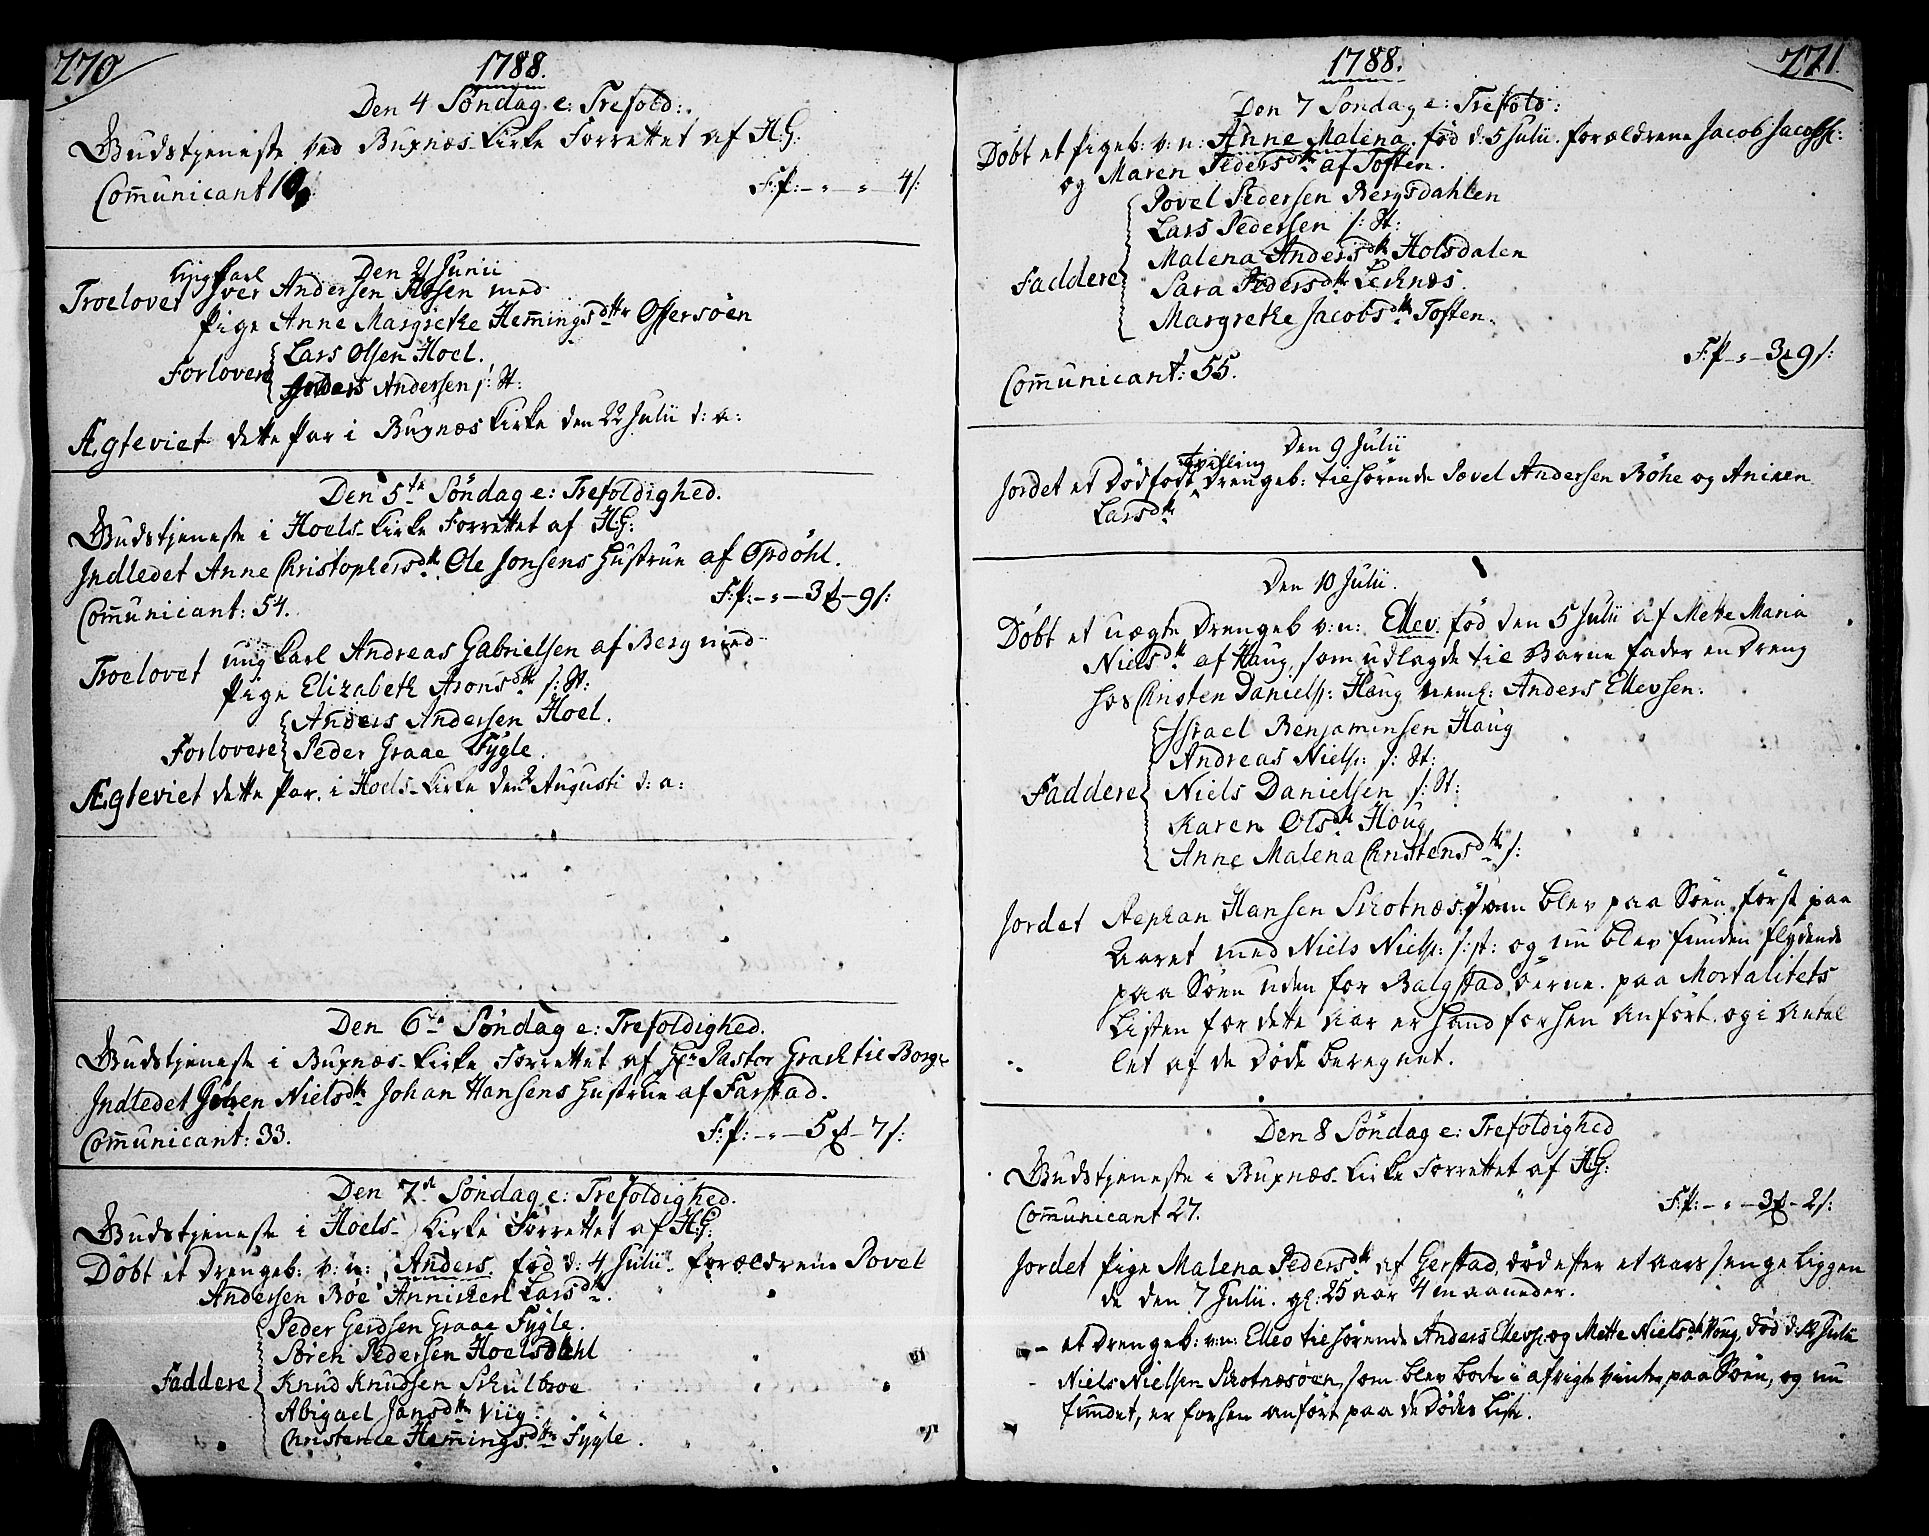 270
1788.
Den 4 Søndag e: Trefold:
Gudstjeneste ved Buxnæs Kirke Forrettet af H.G:
Communicant 10
F:P:-"-"-4 s:
Den 21 Junii
Troelovet ungkarl Iver Andersen med
Pige Anne Margrethe Hemmingsdttr Offersöen
Forlovere
Lars Olsen Hoel.
Anders Andersen s: St:
Ægteviet dette Par i Buxnæs Kirke den 22 Julii d: a:
Den 5te Søndag e: Trefoldighed.
Gudstjeneste i Hoels-Kirke Forrettet af H.G:
Indledet Anne Christophersdtr Ole Jonsens Hustrue af Opdöhl.
Communicant: 54.
F:P:-"-3 -9 s:
Troelovet ung karl Andreas Gabrielsen af Berg med
Pige Elizabeth Aronsdtr s: St:
Forlovere
Anders Andersen Hoel.
Peder Graae Fygle.
Ægteviet dette Par i Hoels-Kirke den 2 Augusti d: a:
Den 6te Søndag e: Trefoldighed.
Gudstjeneste i Buxnæs-Kirke Forrettet af Hr Pastor Grach til Borge
Indledet Nielsdtr Johan Hansens Hustrue af Farstad.
Communicant: 33.
F:P:-"-5 -7 s:
Den 7de Søndag e: Trefoldighed.
Gudstjeneste i Hoels-Kirke Forrettet af H.G:
Døbt et Drengeb: v: n: Anders. fød d: 4 Julii. forældrene Povel
Andersen Böe Annichen Larsdtr.
Faddere
Peder Gerdsen Graae Fygle.
Sören Pedersen Hoelsdahl
Knud Knudsen Schulbroe
Abigael Jansdttr Viig.
Christence Hemmingsdttr Fygle.
271
1788.
Den 7 Søndag e: Trefold:
Døbt et Pigeb: v: n: Anne Malena. fød d: 5 Julii. forældrene Jacob Jacobs:
og Maren Pedersdtr af Toften.
Faddere
Povel Pedersen Bergsdahlen
Lars Pedersen s: St:
Malena Andersdtr Holsdalen
Sara Pedersdtr Lechnæs.
Margrethe Jacobsdtr Toften.
F:P-"-3 9 s:
Communicant: 55.
Den 9 Julii
Jordet et Dödfödt Tvilling Drengeb: tilhörende Povel Andersen Böhe og Anichen
Larsdtr
Den 10 Julii.
Døbt et uægte Drengeb v: n: Ellev. fød den 5 Julii af Mette Maria
Nielsdtr af Haug, som udlagde til Barne fader en Dreng
hos Christen Daniels: Haug neml: Anders Ellevsen:
Faddere
Israel Benjaminsen Haug
Andreas Niels: s: St:
Niels Danielsen s: St:
Karen Olsdtr Houg
Anne Malena Christensdtr s:
Jordet Stephan Hansen Skotnæs: som blev paa Söen först paa
Aaret med Niels Niels: s: st: og nu blev funden flydende
paa Söen uden for Balgstad öerne. paa Mortalitets
Listen for dette aar er hand forhen anfört og i antal
let af de Døde beregnet.
Den 8 Søndag e: Trefoldighed
Gudstjeneste i Buxnæs-Kirke Forrettet af H.G:
Communicant 27.
F:P:-"-3 -2 s:
Jordet Pige Malena Pedersdtr af Gerstad, död efter et aars senge liggen
de den 7 Julii. gl: 25 aar 4 maaneder.
- et Drengeb: v: n: Ellev tilhørende Anders Ellevs: og Mette Nielsdtr Houg, död d: Julii
- Niels Nielsen Skotnæsöen, som blev borte i afvigte vinter paa Söen, og nu
fundet, er forhen anfört paa de Dødes Liste.